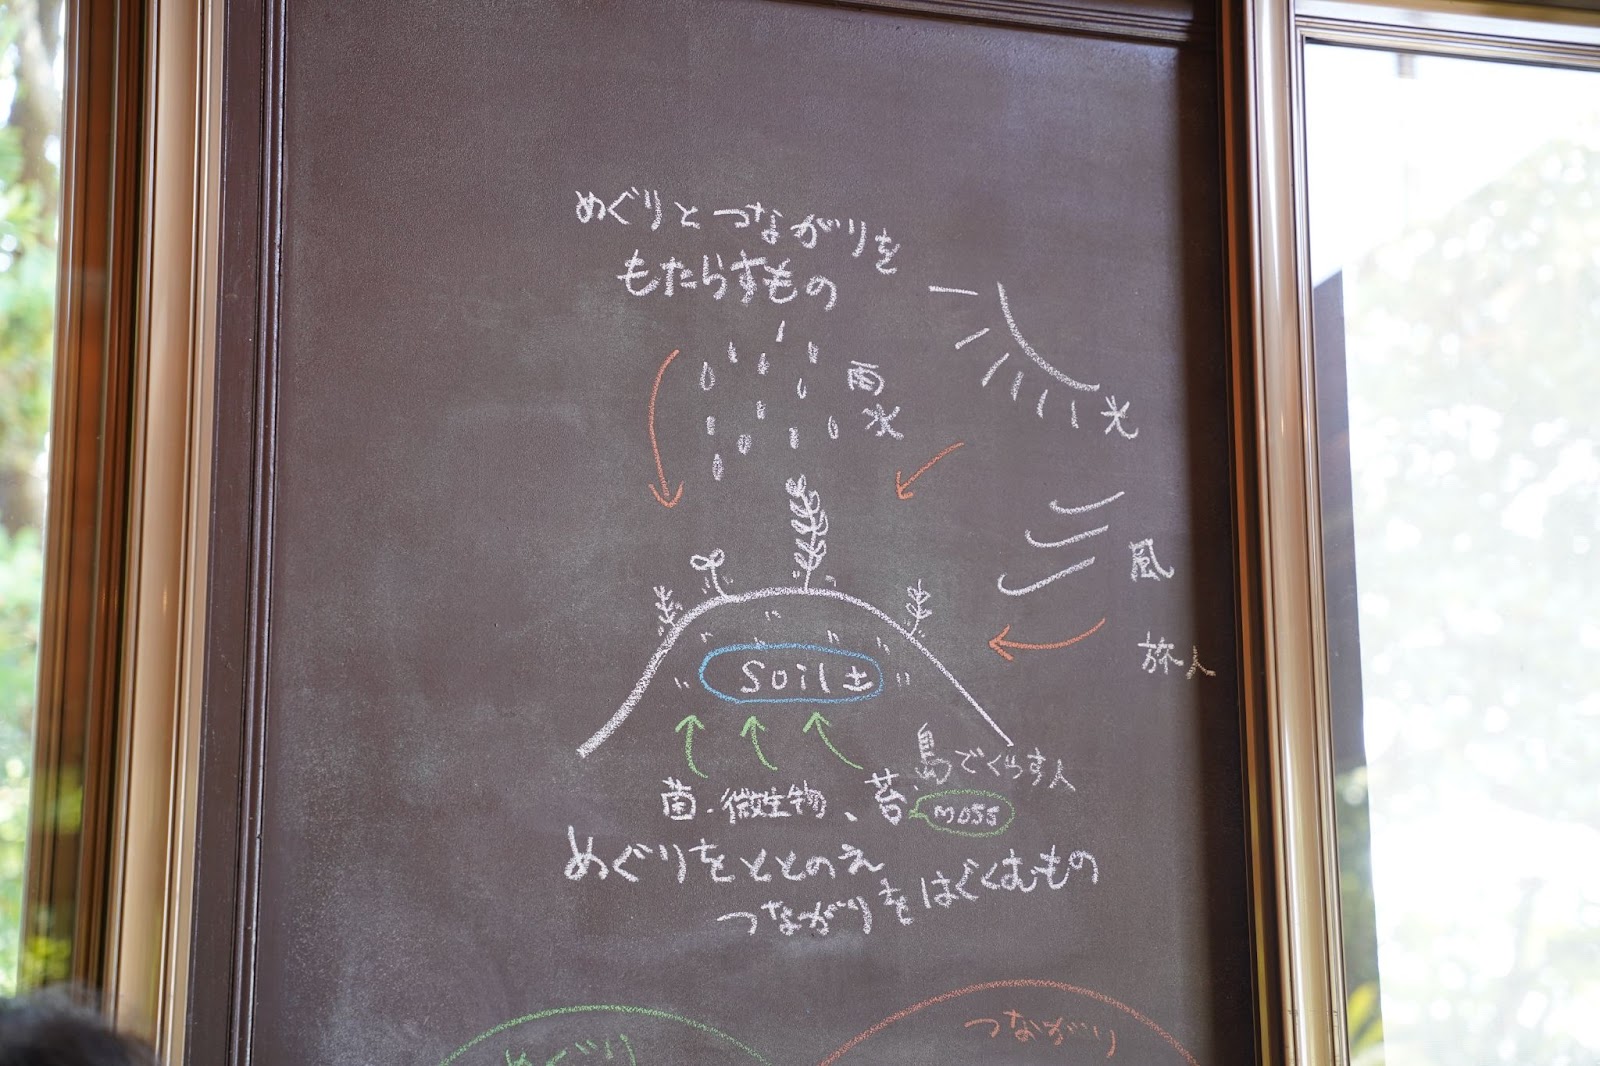 めぐりとつながりを
もたらすもの
雨
水
光
風
旅人
Soil 土
島でくらす人
菌・微生物、苔
moss
めぐりをととのえ
つながりをはぐくむもの
めぐり
つながり